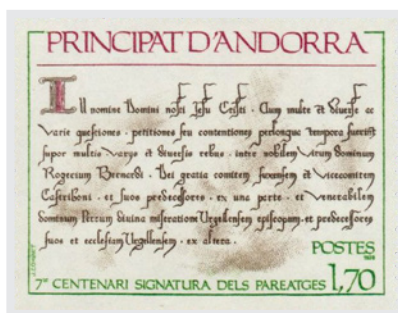 PRINCIPAT D'ANDORRA
In nomine Domini nostri Jesu Cristi. Cum multe et diverse ac
varie questiones. petitiones seu contentiones perlongue tempora fuerint
super multis. varys et diversis rebus. inter nobilem virum dominum
Rogerium Bernardi. Dei gratia comitem fuxensem et Vicecomitem
Castriboni. et suos predecessores. ex una parte. et venerabilem
dominum Petrum divina miseratione Urgellensem episcopum. et predecessores
suos et ecclesiam Urgellensem. ex altera.
POSTES
7e CENTENARI SIGNATURA DELS PAREATGES 1,70